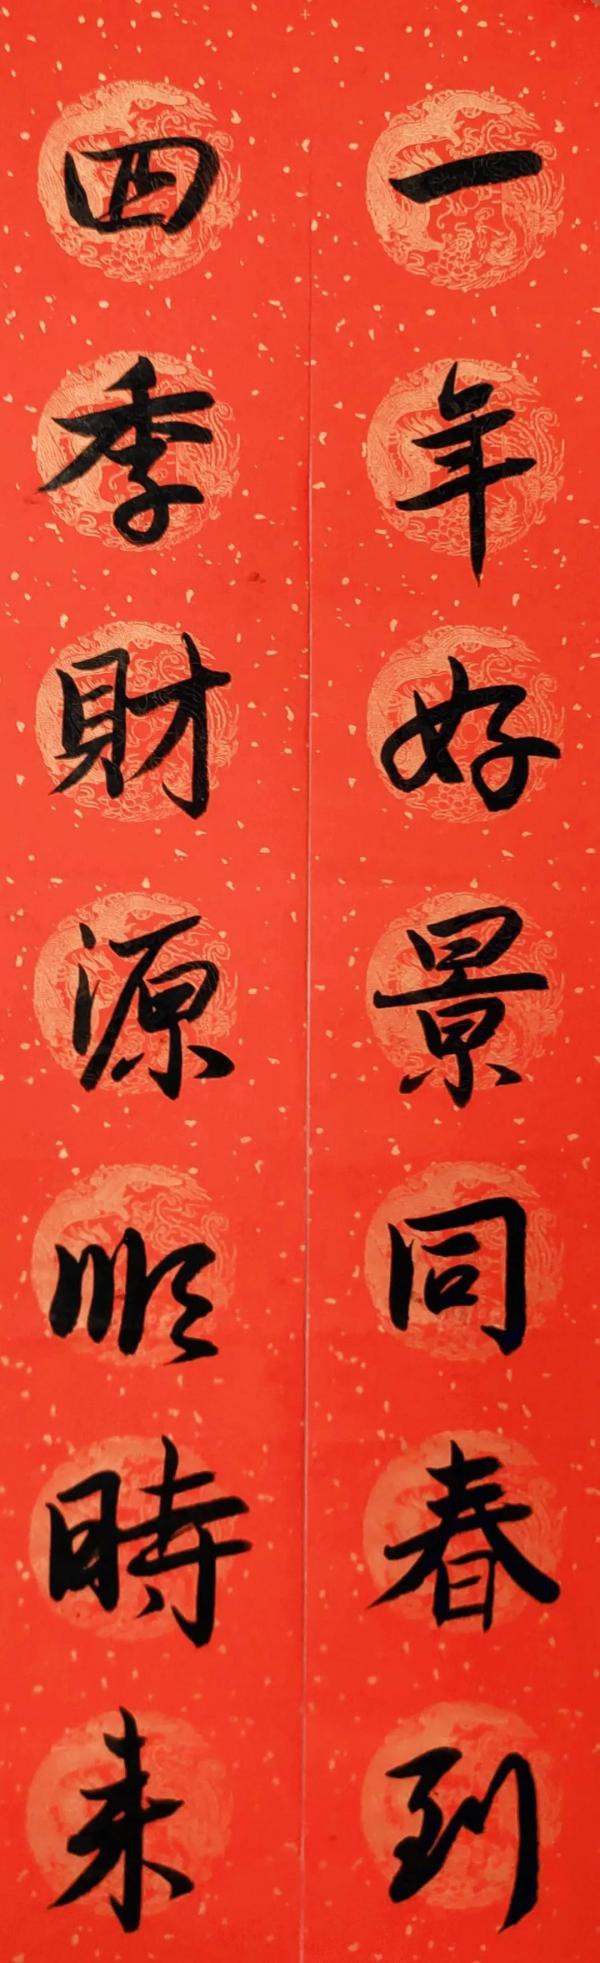 一年好景同春到
四季財源順時来